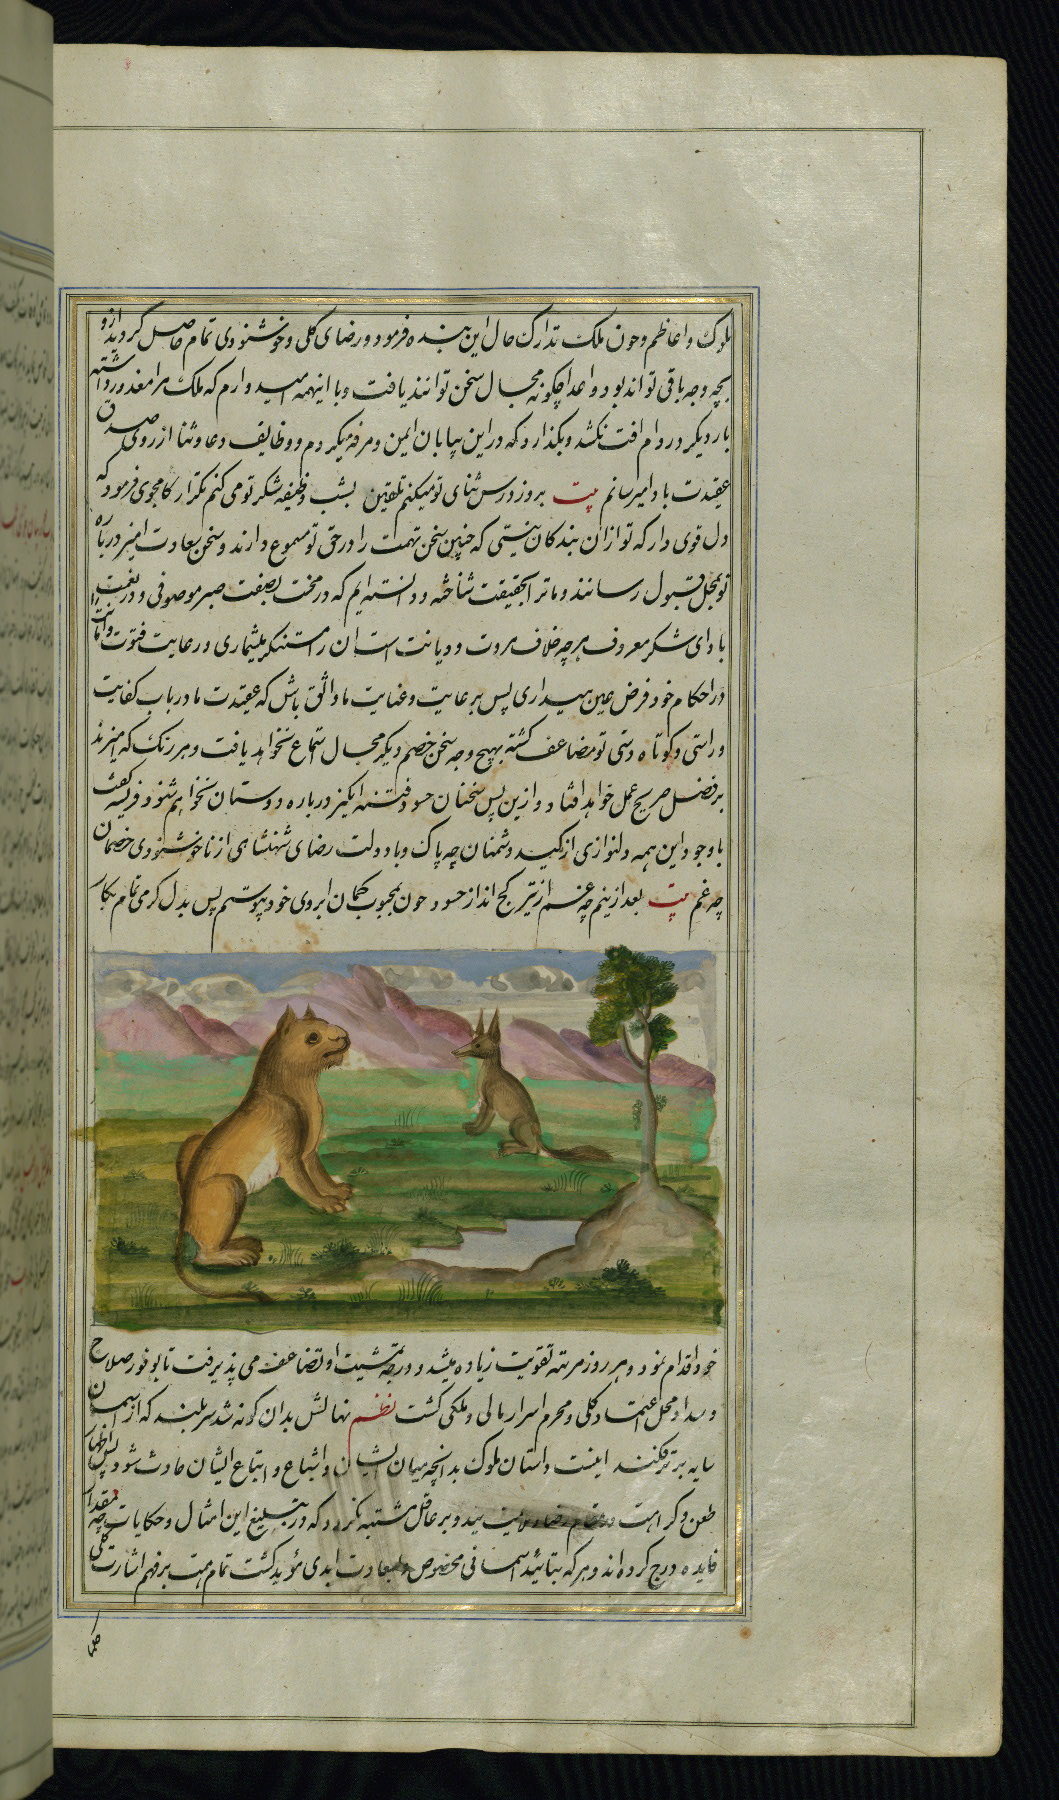 ملوک و اعاظم و چون ملک تدارک حال این بنده فرمود و رضای کلی و خوشنودی تمام حاصل گردید ازو
بچه وجه باقی تواند بود و اعدا چگونه مجال سخن توانند یافت و با اینهمه امید وارم که ملک مرا معذور داشته
بار دیگر در دام افت نکشد و بگذارد که در این بیابان ایمن و مرفه میگردم و وظایف دعا و ثنا از روی صدق
عقیدت با دا میرسانم بیت بروز درس ثنای تو میکنم تلقین بشب وظیفه شکر تو می کنم تکرار کامجوی فرمود که
دل قوی دار که تو ازان بندکان نیستی که چنین سخن تهمت را در حق تو مسموع دارند و سخن سعادت امیز در باره
تو بمحل قبول رسانند و ما ترا بحقیقت شناخته و دانسته ایم که در محنت بصفت صبر موصوفی و در نعمت
با دای شکر معروف هرچه خلاف مروت و دیانت است ان را مستنکر میشماری و رعایت فتوت و امانت را
در احکام خود فرض عین میداری پس برعایت و عنایت ما واثق باش که عقیدت ما در باب کفایت
و راستی و کوتاه دستی تو مضاعف کشته بهیچ وجه سخن خصم دیگر مجال استماع نخواهد یافت و هر رنگ که امیزند
بر فضل صریح عمل خواهد افتاد و ازین پس سخنان حسود فتنه انگیز در باره دوستان نخواهم شنود فریسه گفت
با وجود این همه دلنوازی از کید دشمنان چه باک و با دولت رضای شهنشاهی از ناخوشنودی خصمان
چه غم بیت بعد ازینم چه غم از تیر کج انداز حسود چون بمحبوب کمان ابروی خود پیوستم پس بدل کرمی تمام بکار
خود اقدام نمود و هر روز مرتبه تقویت زیاده میشد و درجه تمشیت او تضاعف می پذیرفت تا بوفور صلاح
و سداد محل اعتماد کلی و محرم اسرار مالی و ملکی کشت نظم نهالش بدان کونه شد سربلند که از اسمان
سایه برتر فکند اینست داستان ملوک بدانچه میان ایشان و اشباع و اتباع ایشان حادث شود پس اظهار
طعن و کراهت و بر عاقل مشتبه نکردد که در تبلیغ این امثال و حکایات چه مقدار
فایده درج کرده اند و هر که بتائید اسمانی مخصوص و بسعادت ابدی مؤید کشت تمام همت بر فهم اشارت